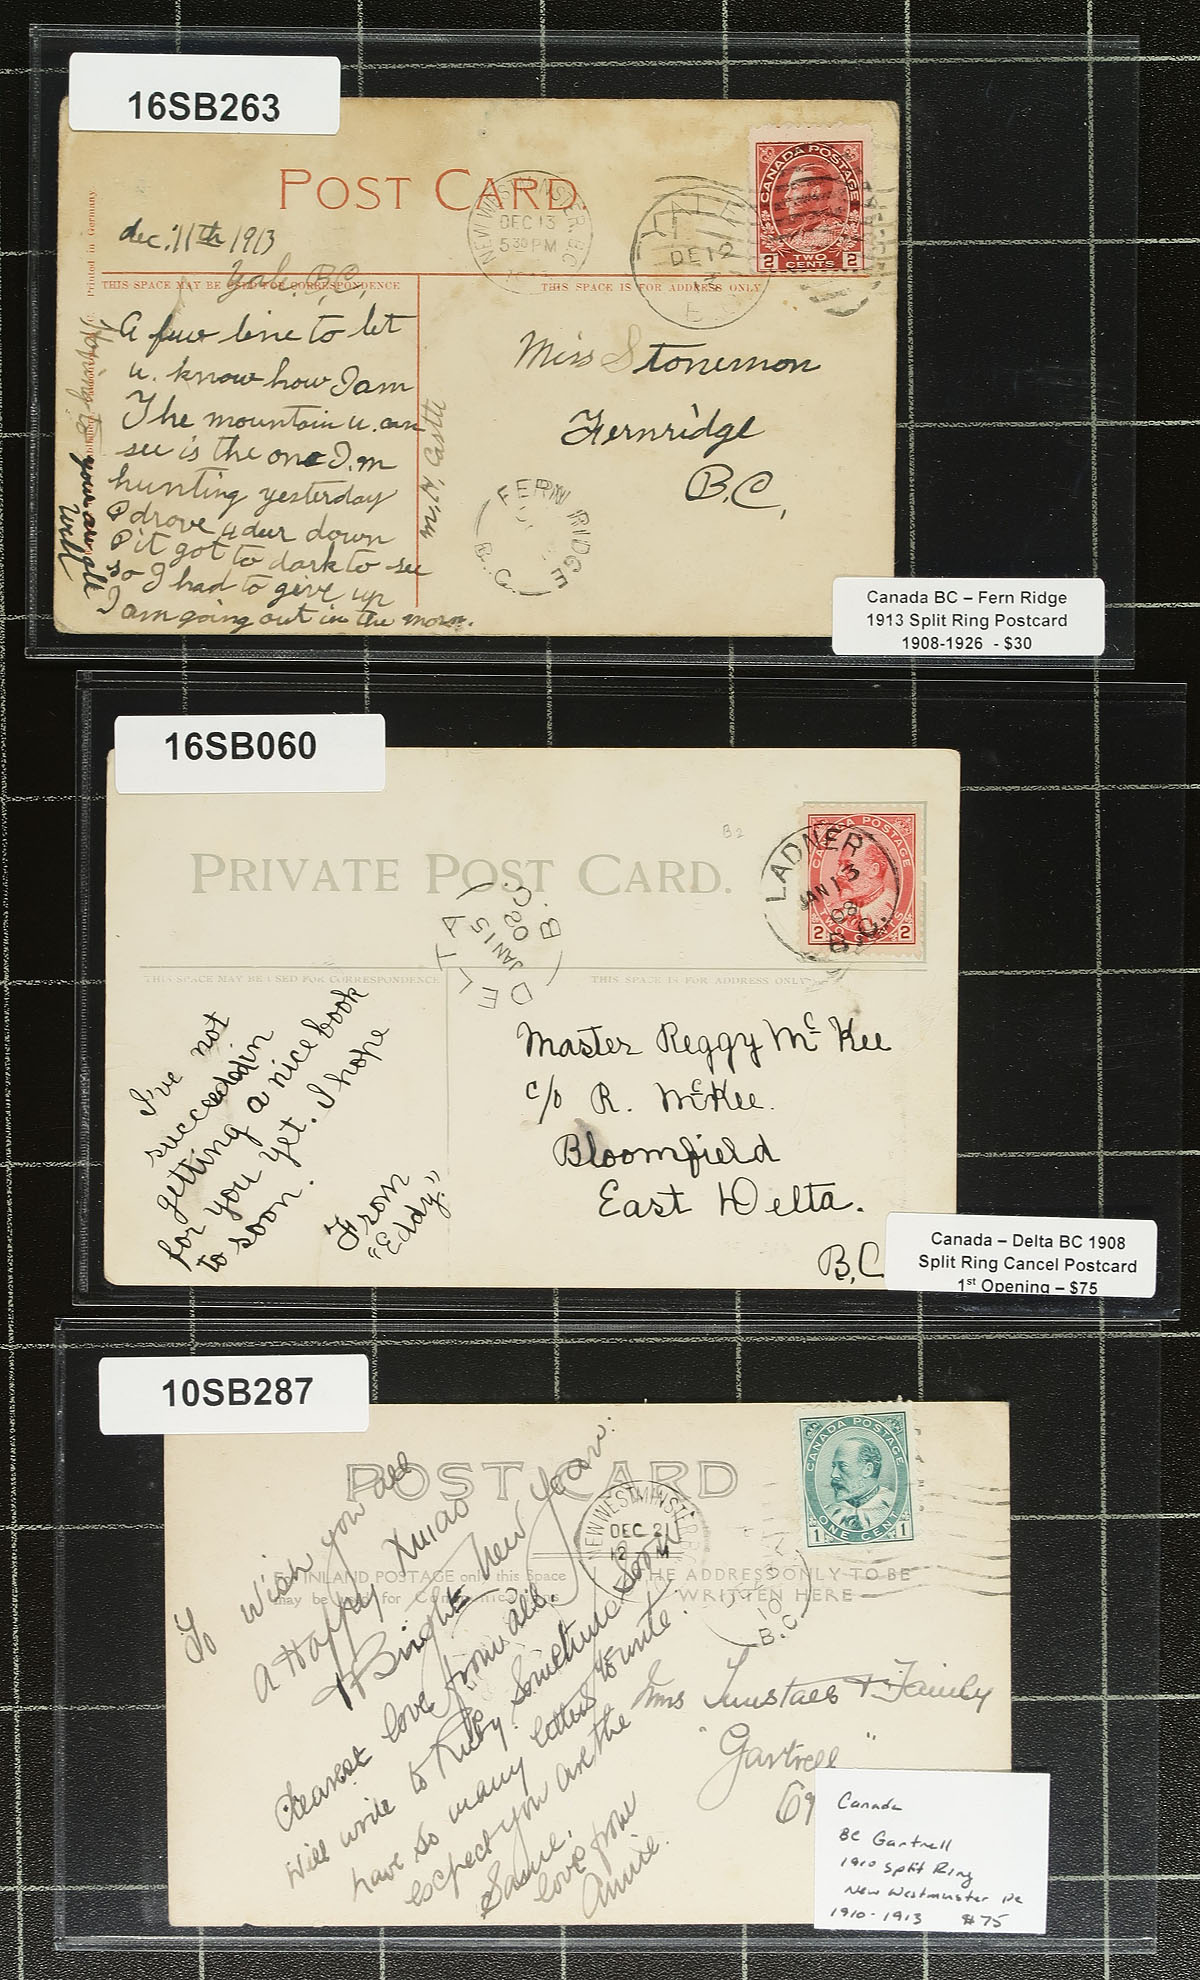 16SB263
POST CARD.
NEW WESTMINSTER. B.C.
DEC 13
5 30 PM
YALE
DE 12
B.C.
CANADA POSTAGE
2 TWO CENTS 2
Printed in Germany
dec. 11th 1913
Yale. B.C,
THIS SPACE MAY BE USED FOR CORRESPONDENCE
THIS SPACE IS FOR ADDRESS ONLY
A few line to let
u. know how I am
The mountain u. can
see is the one I.m
hunting yesterday
I drove 4 deer down
it got to dark to see
so I had to give up
I am going out in the morn.
Hoping to
your are all
well
m. H. Castle
Miss Stonemon
Fernridge
B.C,
FERN RIDGE
B.C.
Canada BC – Fern Ridge
1913 Split Ring Postcard
1908-1926 - $30
16SB060
B2
PRIVATE POST CARD.
LADNER
JAN 13
08
B.C.
CANADA POSTAGE
2 TWO CENTS 2
DELTA
JAN 15
B.C.
THIS SPACE MAY BE USED FOR CORRESPONDENCE
THIS SPACE IS FOR ADDRESS ONLY
I've not
succeeded in
getting a nice book
for you yet. I hope
to soon.
From
"Eddy."
Master Reggy McKee
c/o R. McKee.
Bloomfield
East Delta.
B.C
Canada – Delta BC 1908
Split Ring Cancel Postcard
1st Opening – $75
10SB287
POST CARD
NEW WESTMINSTER B.C.
DEC 21
12 M
CANADA POSTAGE
1 ONE CENT 1
10
B.C.
FOR INLAND POSTAGE only this Space
may be used for Communications
THE ADDRESS ONLY TO BE
WRITTEN HERE
To wish you all
a Happy Xmas
& Bright New Year.
Dearest love from all
Will write to Ruby. Sometime soon
have so many letters to write.
expect you are the
same.
love from
Annie.
Mrs Tunstall & Family
"Gartrell"
Canada
BC Gartrell
1910 split Ring
New Westminster
1910-1913 $75